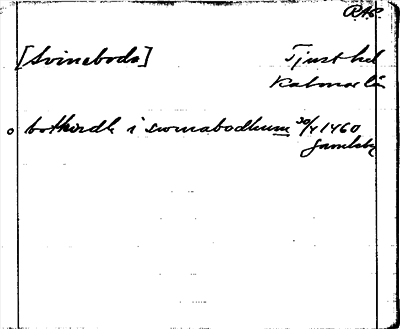 RAP.
[Svineboda] Tjust hd
Kalmar län
o botkirdh i swinabodhum 30/4 1460
Gamleby